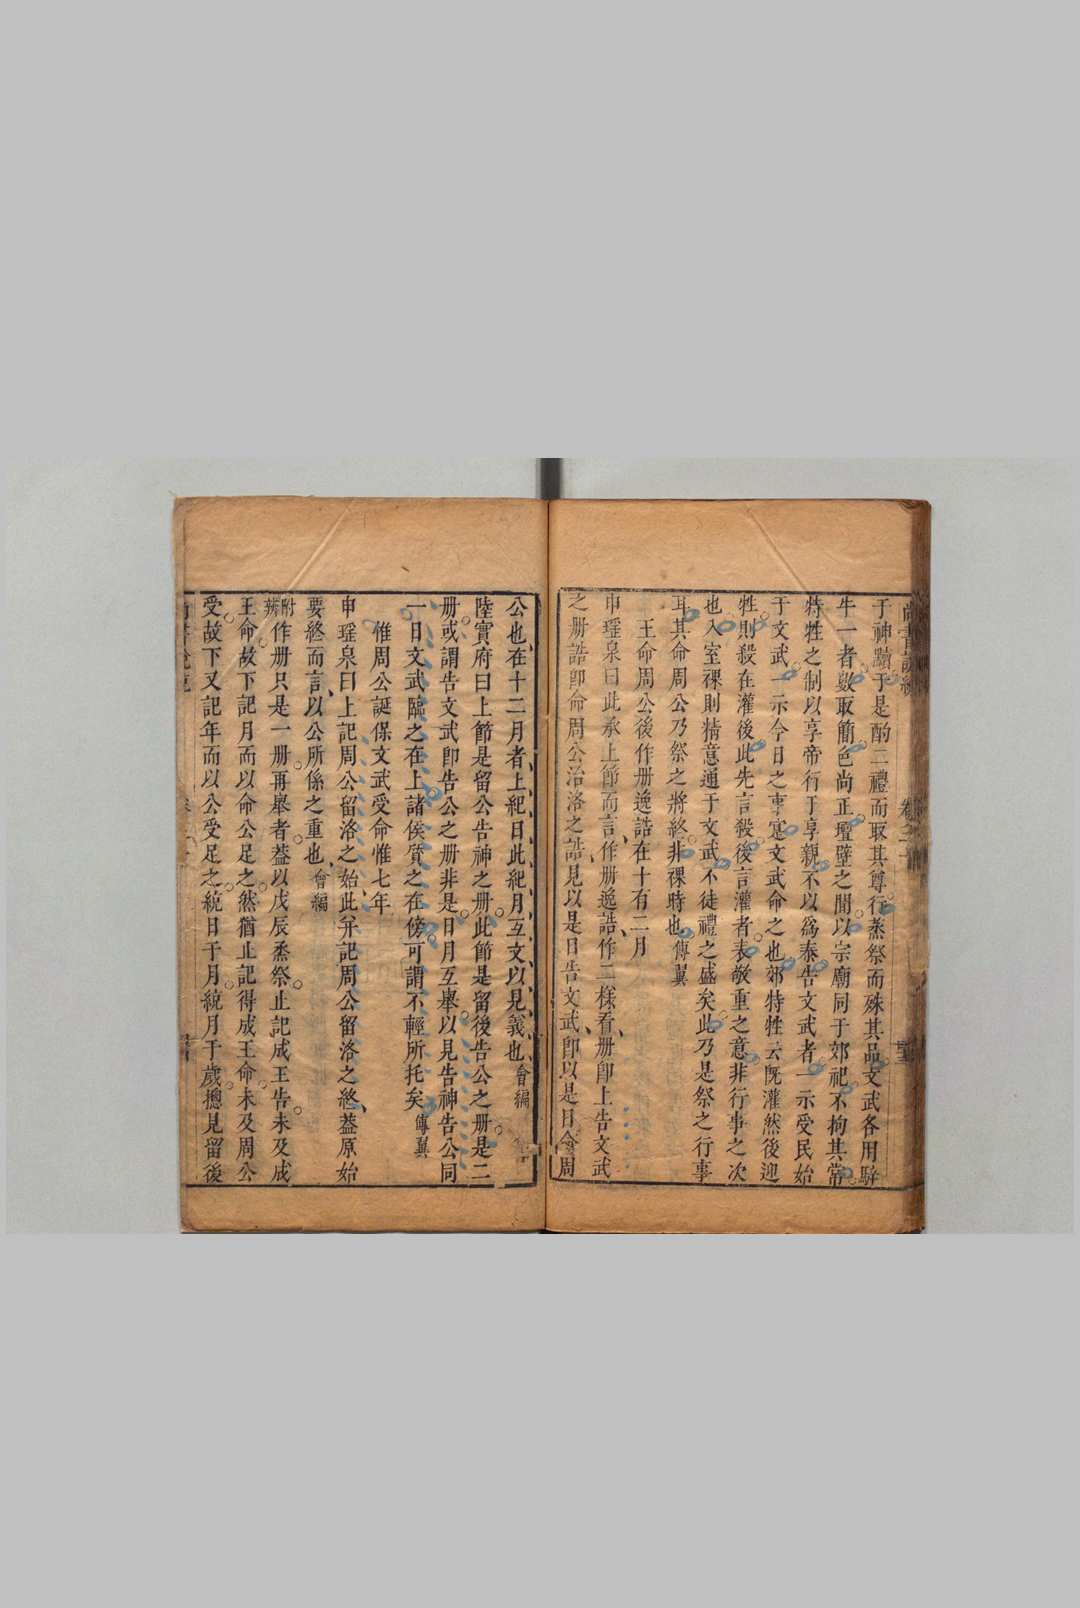 于神黷于是酌二禮而取其尊行烝祭而殊其品文武各用騂
牛一者數取簡色尚正璧之間以宗廟同于郊祀不拘其常
特牲之制以享帝行于享親不以為泰告文武者一示受民始
于文武一示今日之事寔文武命之也郊特牲云既灌然後迎
牲則殺在灌後此先言殺後言灌者表敬重之意非行事之次
也入室祼則精意通于文武不徒禮之盛矣此乃是祭之行事
耳其命周公乃祭之將終非祼時也傳翼
王命周公後作册逸誥在十有二月
申瑶泉曰此承上節而言作册逸誥作二樣看册卽上告文武
之册誥卽命周公治洛之誥見以是日告文武卽以是日命周
公也在十二月者上紀日此紀月互文以見義也會編
陸實府曰上節是留公告神之册此節是留後告公之册是二
册或謂告文武卽告公之册非是日月互舉以見告神告公同
一日文武臨之在上諸侯質之在傍可謂不輕所托矣傳翼
惟周公誕保文武受命惟七年
申瑶泉曰上記周公留洛之始此并記周公留洛之終葢原始
要終而言以公所係之重也會編
附辨作册只是一册再舉者葢以戊辰烝祭止記成王告未及成
王命故下記月而以命公足之然猶止記得成王命未及周公
受故下又記年而以公受足之統日于月統月于歲摠見留後